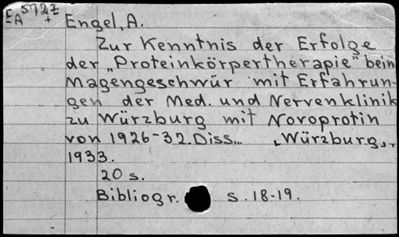 EA 5727 +
Engel, A.
Zur Kenntnis der Erfolge
der „Proteinkörpertherapie" beim
Magengeschwür mit Erfahrun-
gen der Med. und Nervenklinik
zu Würzburg mit Novoprotin
von 1926-32. Diss., Würzburg,
1933.
20 s.
Bibliogr. s. 18-19.